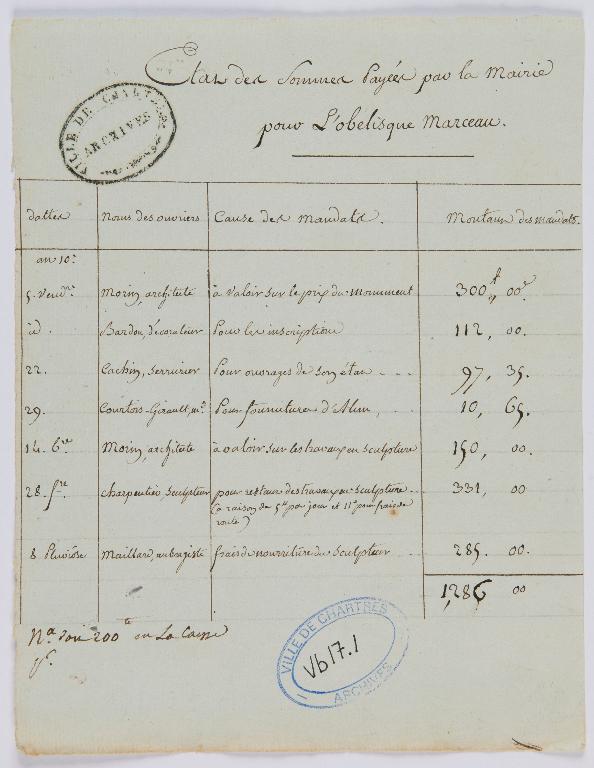 Etat des Sommes Payées par la Mairie
pour L'obélisque Marceau.
VILLE DE CHARTRES
ARCHIVES
dattes Noms des ouvriers Cause des mandats. Montant des mandats.
an 10.e
5. Vend.re Morin, architecte à valoir sur le prix du monument 300 ,, 00
id. Bardou, décorateur Pour les inscriptions 112, 00.
22. Cochin, serrurier Pour ouvrages de son état - - - 97, 35.
29. Courtois-Girault, m.d Pour fourniture d'Alun, 10, 65.
14. b.re Morin, architecte à valoir sur les travaux en sculpture 150, 00.
28. f.re charpentier sculpteur pour restant des travaux en sculpture - - 331, 00
(à raison de 5.tt par jour et 11.tt pour frais de
route)
8 Pluviose Maillard, aubergiste frais de nourriture du sculpteur 285. 00.
1,286 00
N.a doit 200 en La Caisse
VILLE DE CHARTRES
Vb 17.1
ARCHIVES